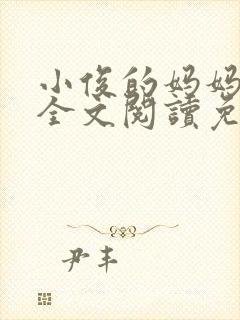 小俊的妈妈
全文閱讀免
尹丰